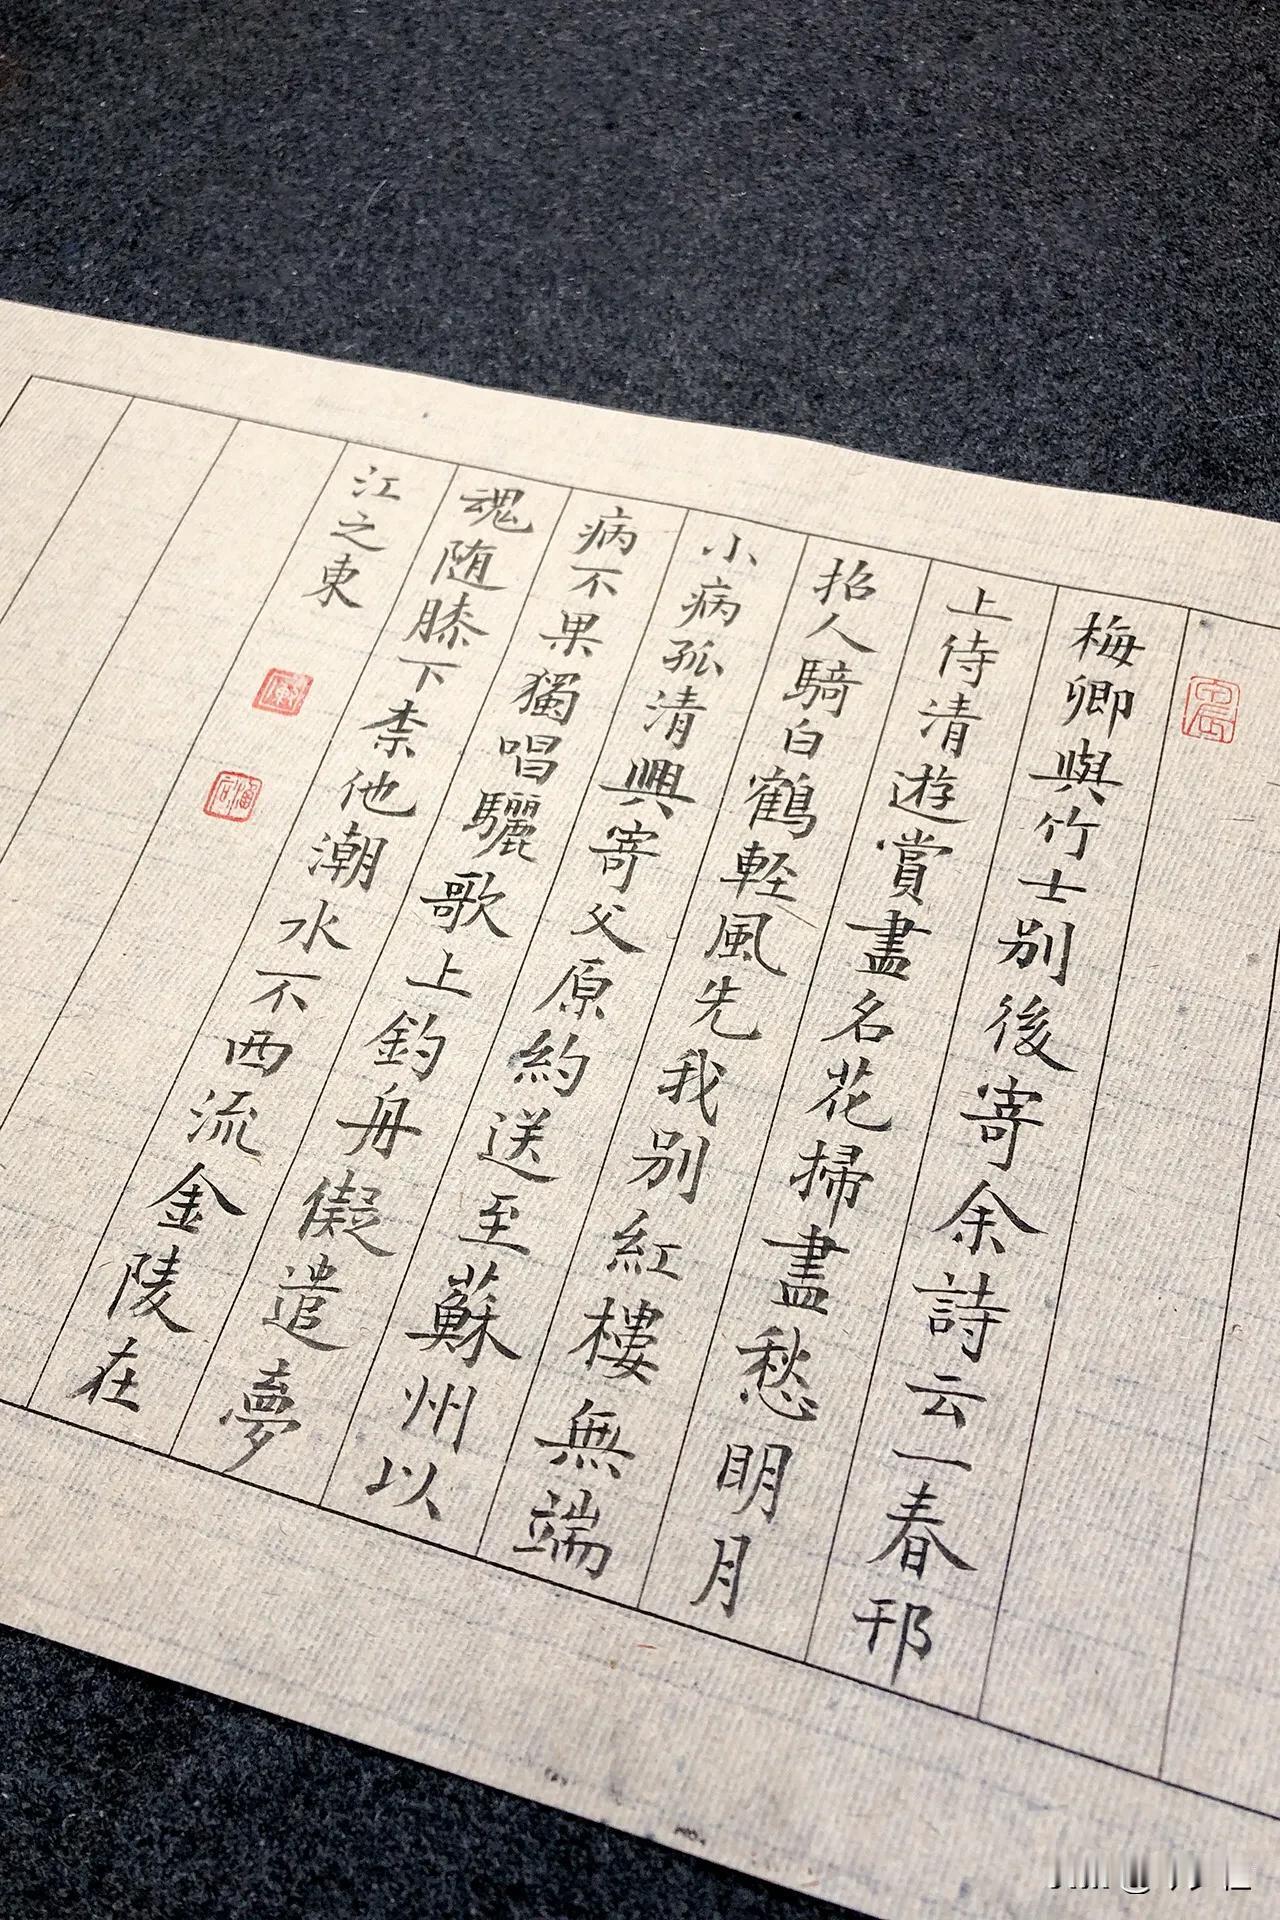 梅卿與竹士别後寄余詩云一春邗
上侍清遊賞盡名花掃盡愁明月
招人騎白鶴輕風先我别紅樓無端
小病孤清興寄父原約送至蘇州以
病不果獨唱驪歌上釣舟儗遣夢
魂随膝下柰他潮水不西流金陵在
江之東